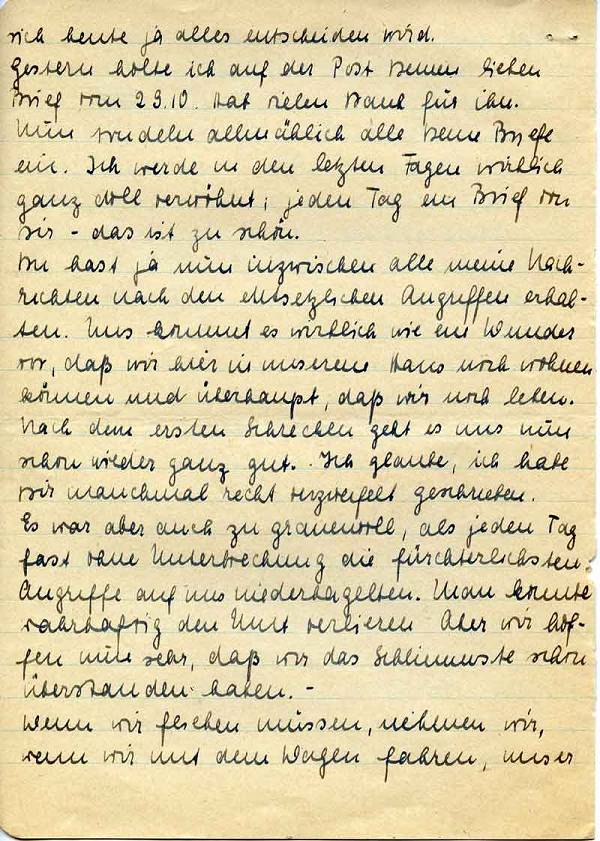 sich heute ja alles entscheiden wird.
Gestern holte ich auf der Post Deinen lieben
Brief vom 29.10. Hab vielen Dank für ihn.
Nun trudeln allmählich alle Deine Briefe
ein. Ich werde in den letzten Tagen wirklich
ganz doll verwöhnt; jeden Tag ein Brief von
Dir - das ist zu schön.
Du hast ja nun inzwischen alle meine Nach-
richten nach den entsetzlichen Angriffen erhal-
ten. Uns kommt es wirklich wie ein Wunder
vor, daß wir hier in unserem Haus noch wohnen
können und überhaupt, daß wir noch leben.
Nach dem ersten Schrecken geht es uns nun
schon wieder ganz gut. Ich glaube, ich habe
Dir manchmal recht verzweifelt geschrieben.
Es war aber auch zu grauenvoll, als jeden Tag
fast ohne Unterbrechung die fürchterlichsten
Angriffe auf uns niederhagelten. Man konnte
wahrhaftig den Mut verlieren Aber wir hof-
fen nun sehr, daß wir das Schlimmste schon
überstanden haben. -
Wenn wir fliehen müssen, nehmen wir,
wenn wir mit dem Wagen fahren, unser